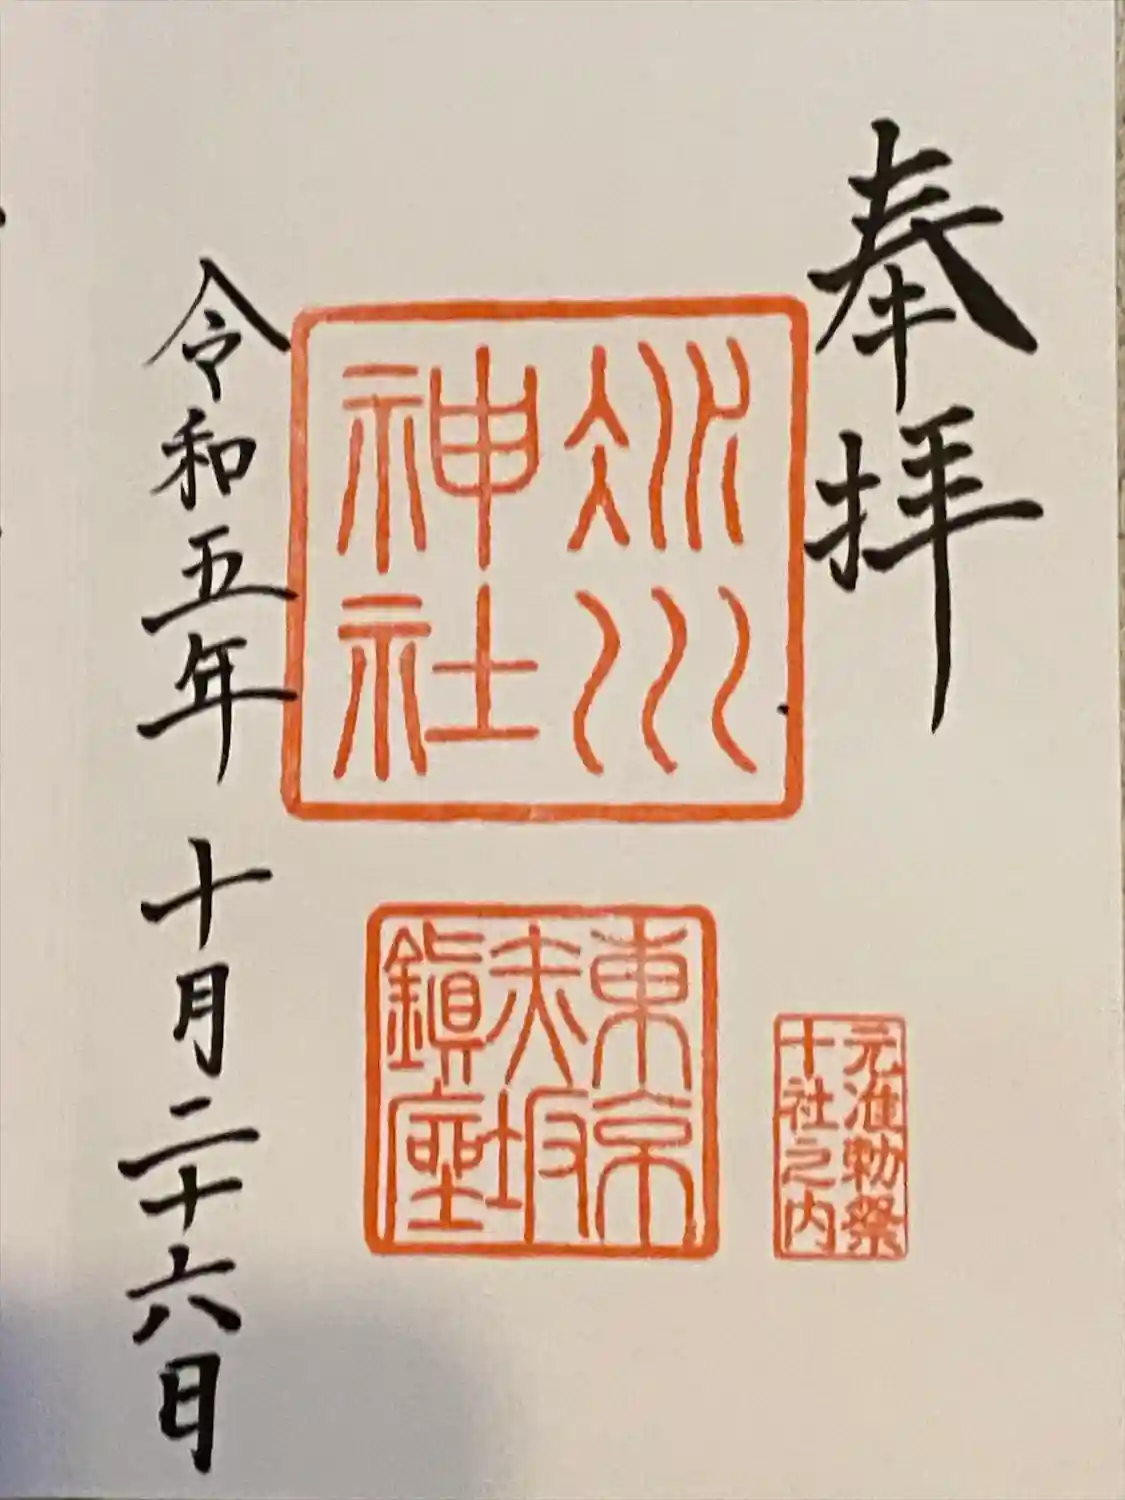 奉拝
氷川
神社
東京
赤坂
鎮座
元准勅祭
十社之内
令和五年 十月二十六日